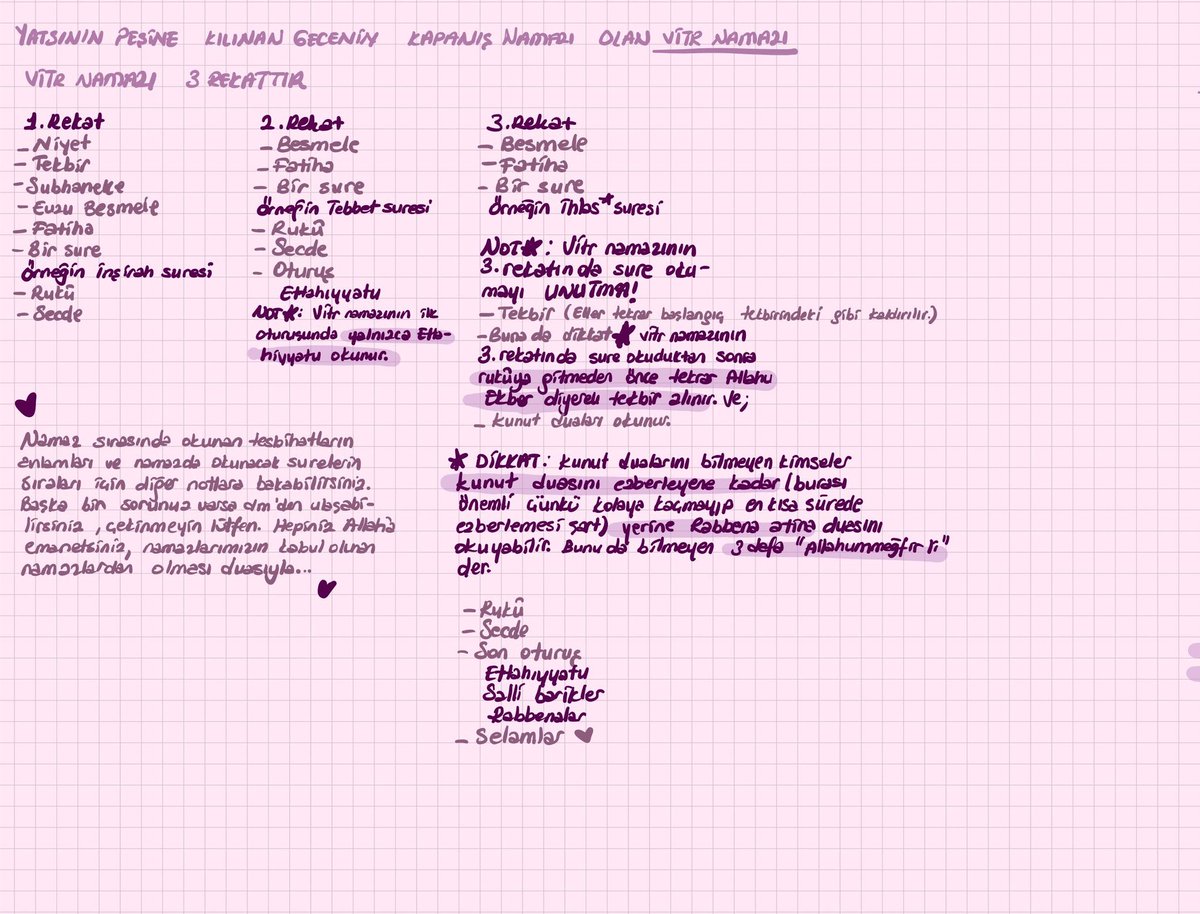 YATSININ PEŞİNE KILINAN GECENİN KAPANIŞ NAMAZI OLAN VİTR NAMAZI
VİTR NAMAZI 3 REKATTIR
1. Rekat
- Niyet
- Tekbir
- Subhaneke
- Euzu Besmele
- Fatiha
- Bir sure
örneğin İnşirah suresi
- Rukû
- Secde
2. Rekat
- Besmele
- Fatiha
- Bir sure
örneğin Tebbet suresi
- Rukû
- Secde
- Oturuş
Ettahıyyatu
NOT*: Vitr namazının ilk
oturuşunda yalnızca Etta-
hiyyatu okunur.
3. Rekat
- Besmele
- Fatiha
- Bir sure
örneğin İhlas* suresi
NOT*: Vitr namazının
3. rekatında sure oku-
mayı UNUTMA!
- Tekbir (Eller tekrar başlangıç tekbirindeki gibi kaldırılır.)
- Buna da dikkat * vitr namazının
3. rekatında sure okuduktan sonra
rukûya gitmeden önce tekrar Allahu
Ekber diyerek tekbir alınır. Ve;
- Kunut duaları okunur.
* DİKKAT: Kunut dualarını bilmeyen kimseler
kunut duasını ezberleyene kadar (burası
önemli çünkü kolaya kaçmayıp en kısa sürede
ezberlemesi şart) yerine Rabbena atina duasını
okuyabilir. Bunu da bilmeyen 3 defa "Allahummeğfir li"
der.
- Rukû
- Secde
- Son oturuş
Ettahıyyatu
Salli barikler
Rabbenalar
- Selamlar
Namaz sırasında okunan tesbihatların
anlamları ve namazda okunacak surelerin
sıraları için diğer notlara bakabilirsiniz.
Başka bir sorunuz varsa dm'den ulaşabi-
lirsiniz, çekinmeyin lütfen. Hepiniz Allah'a
emanetsiniz, namazlarımızın kabul olunan
namazlardan olması duasıyla...